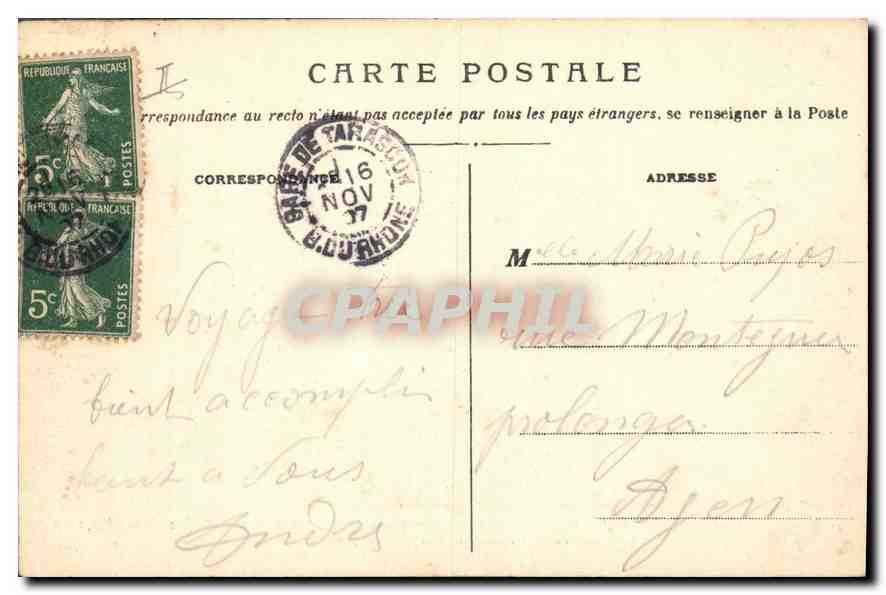 CARTE POSTALE
rrespondance au recto n'étant pas acceptée par tous les pays étrangers, se renseigner à la Poste
CORRESPONDANCE
ADRESSE
REPUBLIQUE FRANÇAISE
5c POSTES
REPUBLIQUE FRANÇAISE
5c POSTES
B.DU RHONE
GARE DE TARASCON
16
NOV
07
B.DU RHONE
CPAPHIL
Voyage tres
bient accompli
tant a Vous
André
Melle Marie Pujos
rue Montesquieu
prolongée
Agen